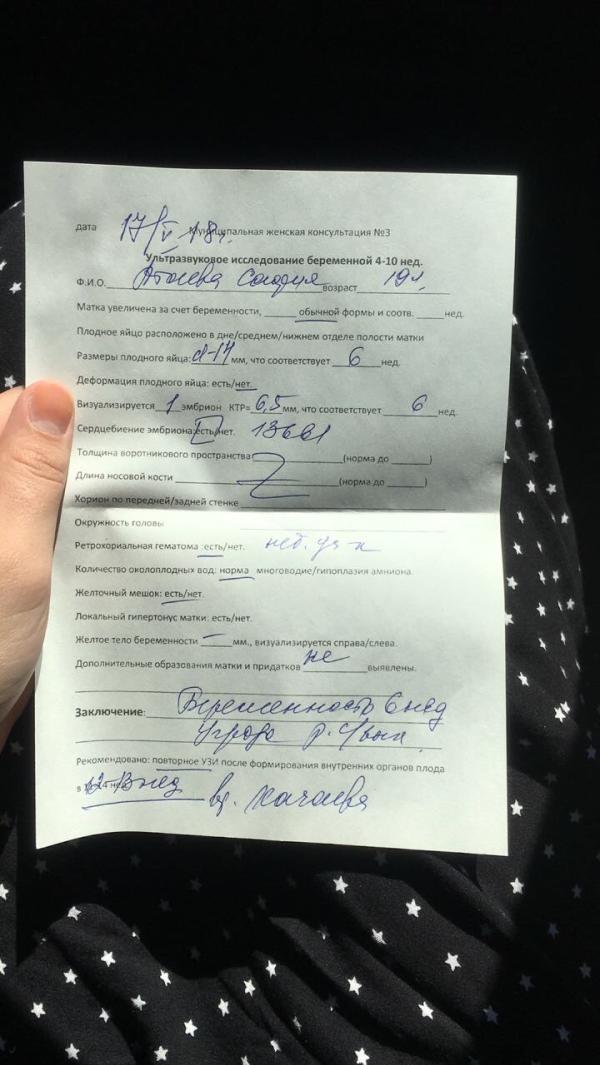 дата 17/V 18г. Муниципальная женская консультация №3
Ультразвуковое исследование беременной 4-10 нед.
Ф.И.О. Атаева возраст 19л
Матка увеличена за счет беременности, обычной формы и соотв. нед.
Плодное яйцо расположено в дне/среднем/нижнем отделе полости матки
Размеры плодного яйца: d-17 мм, что соответствует 6 нед.
Деформация плодного яйца: есть/нет.
Визуализируется 1 эмбрион КТР= 6,5 мм, что соответствует 6 нед.
Сердцебиение эмбриона: есть/нет.
Толщина воротникового пространства (норма до )
Длина носовой кости (норма до )
Хорион по передней/задней стенке
Окружность головы
Ретрохориальная гематома :есть/нет.
Количество околоплодных вод: норма многоводие/гипоплазия амниона.
Желточный мешок: есть/нет.
Локальный гипертонус матки: есть/нет.
Желтое тело беременности мм., визуализируется справа/слева.
Дополнительные образования матки и придатков не выявлены.
Заключение: Беременность 6 нед
Угроза
Рекомендовано: повторное УЗИ после формирования внутренних органов плода
в 12-13 нед